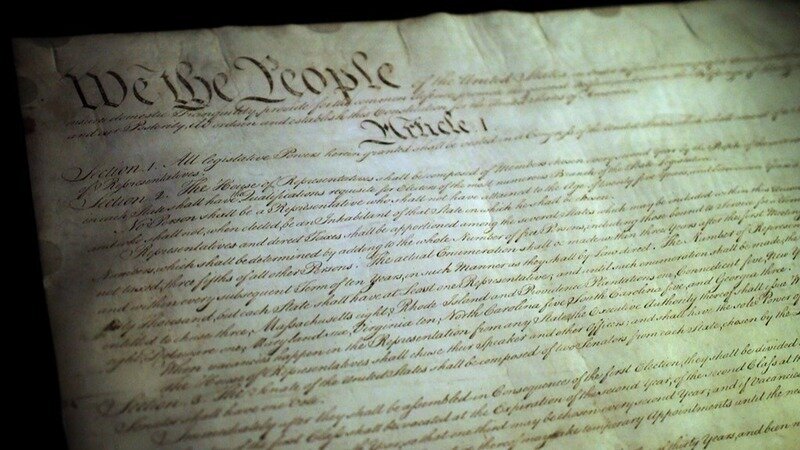 We the People of the United States, in
insure domestic Tranquility, provide for the common defence,
and our Posterity, do ordain and establish this Constitution for the United States of America.
Article. I.
Section. 1. All legislative Powers herein granted shall be vested in a Congress of the United States, which shall consist of a
of Representatives.
Section. 2. The House of Representatives shall be composed of Members chosen every second Year by the People of the several
in each State shall have the Qualifications requisite for Electors of the most numerous Branch of the State Legislature.
No Person shall be a Representative who shall not have attained to the Age of twenty five Years, and been seven Years
and who shall not, when elected, be an Inhabitant of that State in which he shall be chosen.
Representatives and direct Taxes shall be apportioned among the several States which may be included within this Union,
Numbers, which shall be determined by adding to the whole Number of free Persons, including those bound to Service for a Term
not taxed, three fifths of all other Persons. The actual Enumeration shall be made within three Years after the first Meeting
and within every subsequent Term of ten Years, in such Manner as they shall by Law direct. The Number of Represen
thirty Thousand, but each State shall have at Least one Representative; and until such enumeration shall be made, the
entitled to chuse three, Massachusetts eight, Rhode Island and Providence Plantations one, Connecticut five, New Y
eight, Delaware one, Maryland six, Virginia ten, North Carolina five, South Carolina five, and Georgia three.
When vacancies happen in the Representation from any State, the Executive Authority thereof shall issue W
The House of Representatives shall chuse their Speaker and other Officers; and shall have the sole Power of
Section. 3. The Senate of the United States shall be composed of two Senators from each State, chosen by the
Senator shall have one Vote.
Immediately after they shall be assembled in Consequence of the first Election, they shall be divided
of the first Class shall be vacated at the Expiration of the second Year, of the second Class at t
Year, so that one third may be chosen every second Year; and if Vacancies
thereof may make temporary Appointments until the ne
thirty Years, and been n